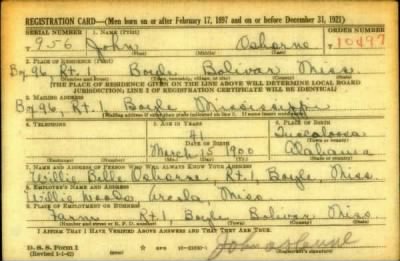 REGISTRATION CARD—(Men born on or after February 17, 1897 and on or before December 31, 1921)
SERIAL NUMBER 1. NAME (Print) ORDER NUMBER
T 956 John Osborne 10497
(First) (Middle) (Last)
2. PLACE OF RESIDENCE (Print)
Bx 96, Rt. 1 Boyle Bolivar Miss.
(Number and street) (Town, township, village, or city) (County) (State)
[THE PLACE OF RESIDENCE GIVEN ON THE LINE ABOVE WILL DETERMINE LOCAL BOARD
JURISDICTION; LINE 2 OF REGISTRATION CERTIFICATE WILL BE IDENTICAL]
3. MAILING ADDRESS
Bx 96, Rt. 1 Boyle Mississippi
[Mailing address if other than place indicated on line 2. If same insert word same]
4. TELEPHONE 5. AGE IN YEARS 6. PLACE OF BIRTH
41 Tuscaloosa
DATE OF BIRTH (Town or county)
March 15 1900 Alabama
(Exchange) (Number) (Mo.) (Day) (Yr.) (State or country)
7. NAME AND ADDRESS OF PERSON WHO WILL ALWAYS KNOW YOUR ADDRESS
Willie Belle Osborne Rt. 1, Boyle, Miss.
8. EMPLOYER'S NAME AND ADDRESS
Willie Meador Miss.
9. PLACE OF EMPLOYMENT OR BUSINESS
Farm Rt. 1 Boyle Bolivar Miss.
(Number and street or R. F. D. number) (Town) (County) (State)
I AFFIRM THAT I HAVE VERIFIED ABOVE ANSWERS AND THAT THEY ARE TRUE.
D. S. S. Form 1
(Revised 1-1-42) (over) John Osborne